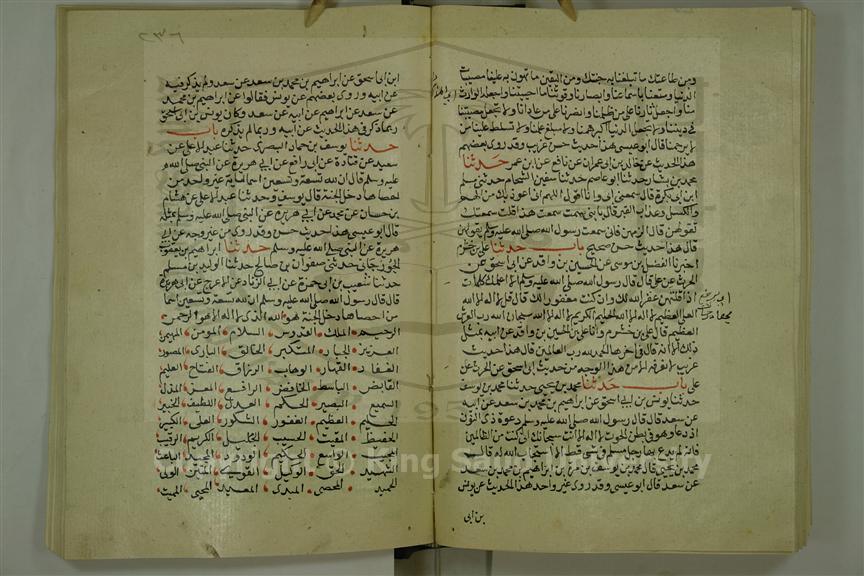 ومن طاعتك ما تبلغنا به جنتك ومن اليقين ما تهون به علينا مصيبات
الدنيا ومتعنا باسماعنا وابصارنا وقوتنا ما احييتنا واجعله الوارث
منا واجعل ثارنا على من ظلمنا وانصرنا على من عادانا ولا تجعل مصيبتنا
في ديننا ولا تجعل الدنيا اكبر همنا ولا مبلغ علمنا ولا تسلط علينا من
لا يرحمنا قال ابو عيسى هذا حديث حسن غريب وقد روى بعضهم
هذا الحديث عن خالد بن ابي عمران عن نافع عن ابن عمر حدثنا
محمد بن بشار حدثنا ابو عاصم حدثنا سفين الشحام حدثني مسلم
ابن ابي بكرة قال سمعني ابي وانا اقول اللهم اني اعوذ بك من الهم
والكسل وعذاب القبر قال يا بني ممن سمعت هذا قلت سمعتك
تقولهن قال الزمهن فاني سمعت رسول الله صلى الله عليه وسلم يقولهن
قال هذا حديث حسن صحيح باب حدثنا علي بن خشرم
اخبرنا الفضل بن موسى عن الحسين بن واقد عن ابي اسحق عن
الحرث عن علي قال قال رسول الله صلى الله عليه وسلم الا اعلمك كلمات
اذا قلتهن غفر الله لك وان كنت مغفورا لك قال قل لا اله الا الله
العلي العظيم لا اله الا الله الحليم الكريم لا اله الا الله سبحان الله رب العرش
العظيم قال علي بن خشرم وانا علي بن الحسين بن واقد عن ابيه بمثل
ذلك الا انه قال في اخرها الحمد لله رب العالمين قال هذا حديث
غريب لا نعرفه الا من هذا الوجه من حديث ابي اسحق عن الحرث عن
علي باب حدثنا محمد بن يحيى حدثنا محمد بن يوسف
حدثنا يونس بن ابي اسحق عن ابراهيم بن محمد بن سعد عن ابيه
عن سعد قال قال رسول الله صلى الله عليه وسلم دعوة ذي النون
اذ دعا وهو في بطن الحوت لا اله الا انت سبحانك اني كنت من الظالمين
فانه لم يدع بها رجل مسلم في شي قط الا استجاب الله له قال
محمد بن يحيى قال محمد بن يوسف مرة عن ابراهيم بن محمد بن سعد
عن سعد قال ابو عيسى وقد روى غير واحد هذا الحديث عن يونس
بن ابي
٢٣٦
ابن ابي اسحق عن ابراهيم بن محمد بن سعد عن سعد ولم يذكر فيه
عن ابيه وروى بعضهم عن يونس فقالوا عن ابراهيم بن محمد
عن سعد عن ابراهيم عن ابيه عن سعد وكان يونس بن ابي اسحق
ربما ذكر في هذا الحديث عن ابيه وربما لم يذكره باب
حدثنا يوسف بن حماد البصري حدثنا عبد الاعلى عن
سعيد عن قتادة عن ابي رافع عن ابي هريرة عن النبي صلى الله
عليه وسلم قال ان لله تسعة وتسعين اسما مائة غير واحد من
احصاها دخل الجنة قال يوسف وحدثنا عبد الاعلى عن هشام
بن حسان عن محمد عن ابي هريرة عن النبي صلى الله عليه وسلم بمثله
قال ابو عيسى هذا حديث حسن وقد روي من غير وجه عن ابي
هريرة عن النبي صلى الله عليه وسلم حدثنا ابراهيم بن يعقوب
الجوزجاني حدثني صفوان بن صالح حدثنا الوليد بن مسلم
حدثنا شعيب بن ابي حمزة عن ابي الزناد عن الاعرج عن ابي هريرة
قال قال رسول الله صلى الله عليه وسلم ان لله تسعة وتسعين اسما
من احصاها دخل الجنة هو الله الذي لا اله الا هو الرحمن
الرحيم الملك القدوس السلام المومن المهيمن
العزيز الجبار المتكبر الخالق الباري المصور
الغفار القهار الوهاب الرزاق الفتاح العليم
القابض الباسط الخافض الرافع المعز المذل
السميع البصير الحكم العدل اللطيف الخبير
الحليم العظيم الغفور الشكور العلي الكبير
الحفيظ المقيت الحسيب الجليل الكريم الرقيب
المجيب الواسع الحكيم الودود المجيد الباعث
الشهيد الحق الوكيل القوي المتين الولي
الحميد المحصي المبدي المعيد المحيي المميت
Copyright © King Saud University